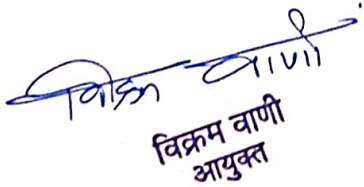 विक्रम वाणी
विक्रम वाणी
आयुक्त